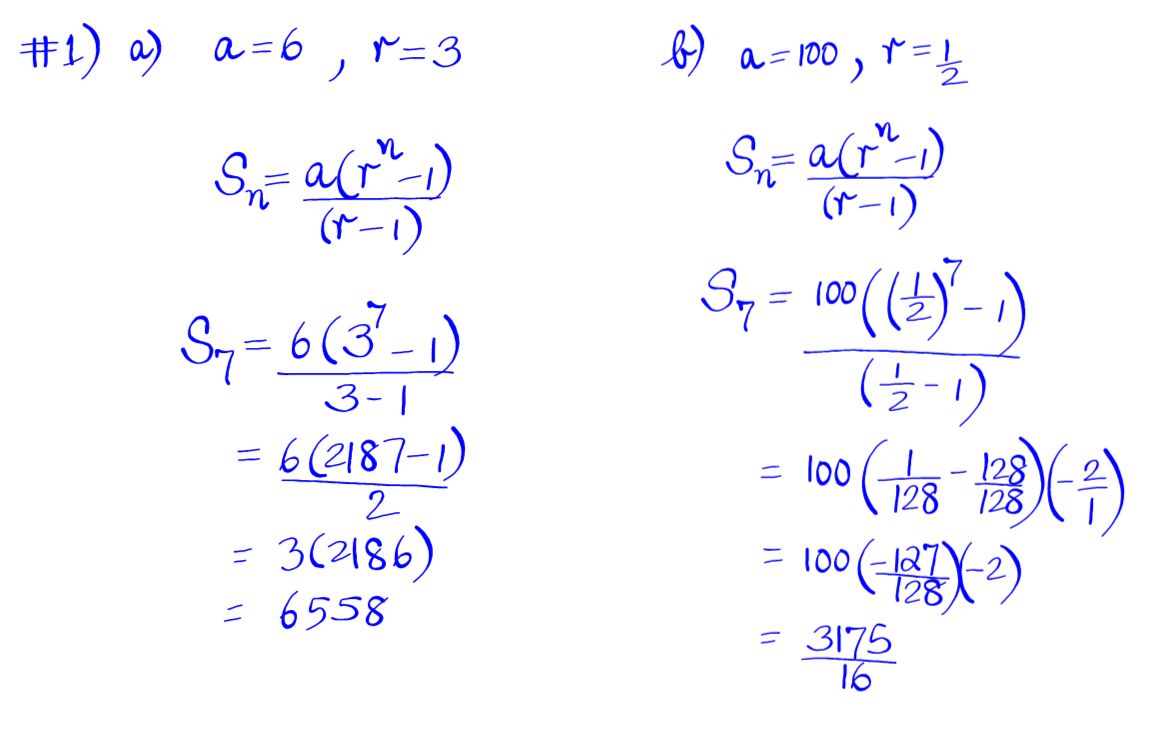 #1) a) a = 6 , r = 3
S_n = a(r^n - 1) / (r - 1)
S_7 = 6(3^7 - 1) / 3 - 1
= 6(2187 - 1) / 2
= 3(2186)
= 6558
b) a = 100 , r = 1/2
S_n = a(r^n - 1) / (r - 1)
S_7 = 100((1/2)^7 - 1) / (1/2 - 1)
= 100(1/128 - 128/128)(-2/1)
= 100(-127/128)(-2)
= 3175/16